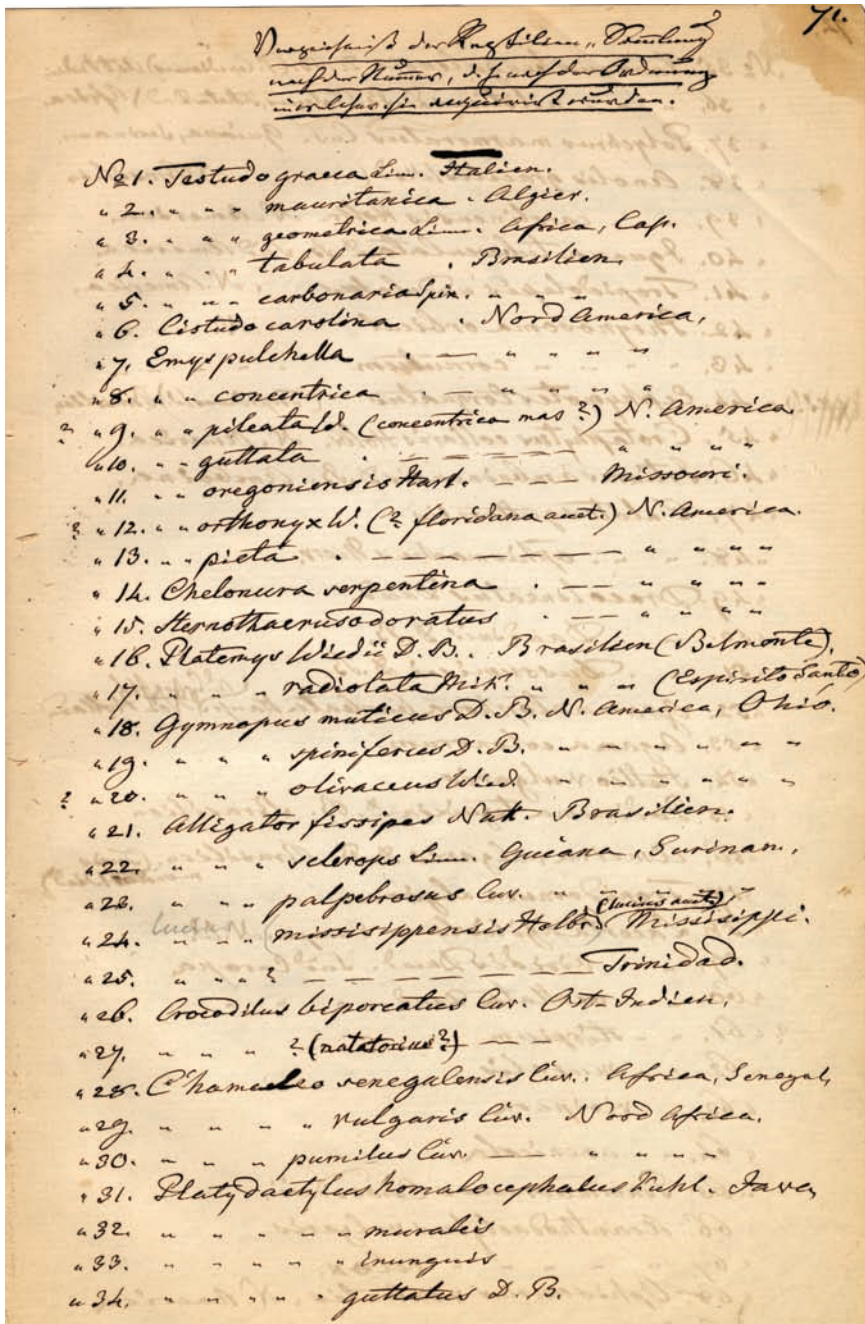 71.
Verzeichniß der Reptilien-Sammlung
nach der Numer, d. h. nach der Ordnung
in welcher sie acquirirt wurden.
No 1. Testudo graeca Lin. Italien.
" 2. " " " mauritanica . Algier.
" 3. " " " geometrica Linn. Africa, Cap.
" 4. " " " tabulata . Brasilien.
" 5. " " " carbonaria Spix. " " "
" 6. Cistudo carolina . Nord America,
" 7. Emys pulchella . — " " "
" 8. " " concentrica . — " " " "
? " 9. " " pileata W. (concentrica mas ?) N. America.
" 10. " " guttata . — — — — — " " " "
" 11. " " oregoniensis Harl. — — Missouri.
? " 12. " " orthonyx W. (? floridana auct.) N. America.
" 13. " " picta . — — — — — — " " " "
" 14. Chelonura serpentina . — — " " " "
" 15. Sternothaerus odoratus . — — " " " "
" 16. Platemys Wiedii D. B. . Brasilien (Belmonte),
" 17. " " " radiolata Mik. " " " (Espirito Santo)
" 18. Gymnopus muticus D. B. N. America, Ohió.
" 19. " " " spiniferus D. B. " " " " " "
? " 20. " " " olivaceus Wied. " " " " " "
" 21. Alligator fissipes Natt. Brasilien.
" 22. " " " sclerops Linn. Guiana, Surinam.,
" 23. " " " palpebrosus Cuv. " " " "
" 24. lucius " " " missisippensis Holbr. (lucius auct.) Missisippi.
" 25. " " ? — — — — — — — — Trinidad.
" 26. Crocodilus biporcatus Cuv. Ost-Indien,
" 27. " " " ? (natatorius ?) — —
" 28. Chamaeleo senegalensis Cuv. . Africa, Senegal,
" 29. " " " " vulgaris Cuv. Nord Africa.
" 30. " " " pumilus Cuv. — " " "
" 31. Platydactylus homalocephalus Kuhl. Java,
" 32. " " " " " muralis
" 33. " " " " " inunguis
" 34. " " " " " guttatus D. B.